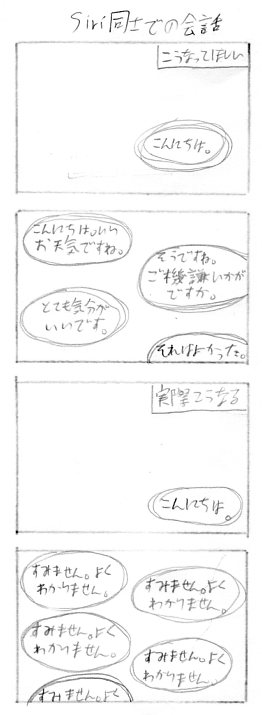 Siri同士での会話
こうなってほしい
こんにちは。
こんにちは。いい
お天気ですね。
そうですね。
ご機嫌いかが
ですか。
とても気分が
いいです。
それはよかった。
実際こうなる
こんにちは。
すみません。よく
わかりません。
すみません。よく
わかりません。
すみません。よく
わかりません。
すみません。よく
わかりません。
すみません。よく